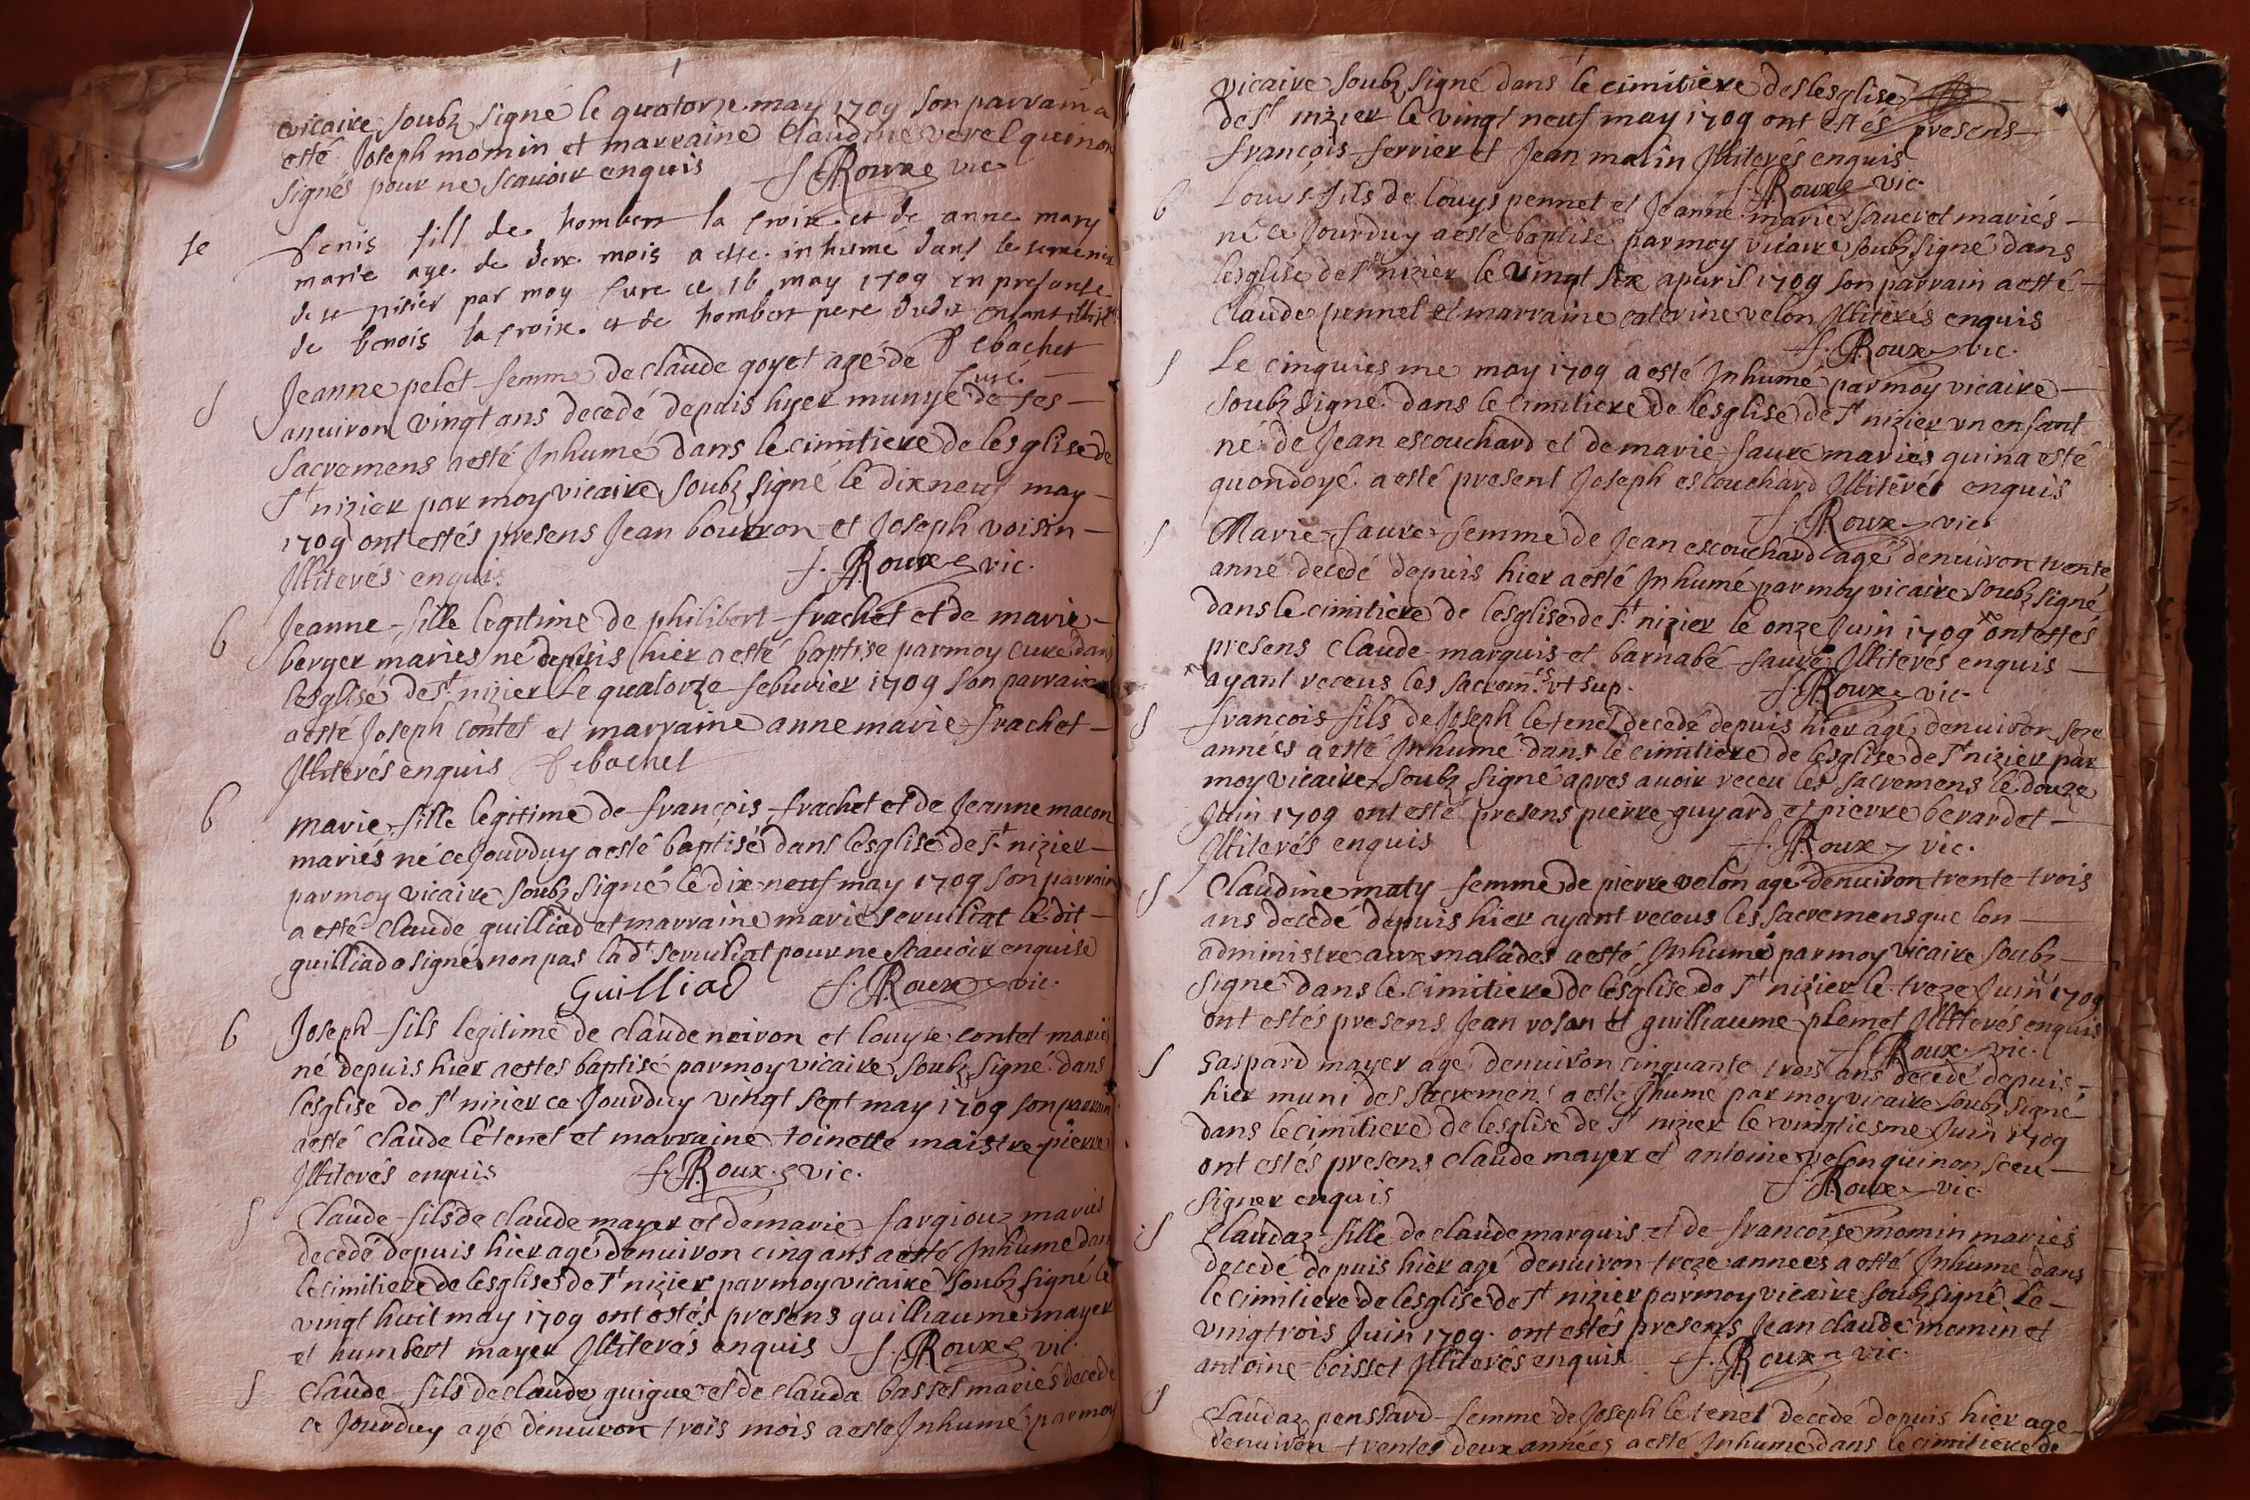 vicaire soubz signé le quatorze may 1709 son parrain a
esté Joseph momin et marraine Claudine verel qui non
signés pour ne scavoir enquis f. Roux vic
se
benis fill de hombert la croix et de anne mary
marie age de deux mois a este inhumé dans le
de st nisier par moy cure ce 16 may 1709 en presente
de benois la croix et de hombert pere dudit enfant
Debachet
curé
S
Jeanne pelet femme de claude goyet agé de
anuiron vingt ans decedé depuis hyer munye de ses
sacremens a esté Inhumé dans le cimitiere de lesglise de
st nizier par moy vicaire soubz signé le dixneuf may
1709 ont estés presens Jean bourron et Joseph voisin
Illiterés enquis f. Roux vic.
b
Jeanne fille legitime de philibert frachet et de marie
berger mariés né depuis hier a esté baptise par moy cure dans
lesglise de st nizier le quatorze feburier 1709 son parrain
a esté Joseph contet et marraine anne marie frachet
Illiterés enquis Debachet
b
marie fille legitime de françois frachet et de Jeanne macon
mariés né ce Jourduy a esté baptisé dans lesglise de st nizier
par moy vicaire soubz signé le dix neuf may 1709 son parrain
a esté claude guilliad et marraine marie seruiliat le dit
guilliad a signé non pas lad.t seruiliat pour ne scauoir enquise
Guilliad f. Roux vic.
b
Joseph fils legitime de claude noiron et louyse contet mariés
né depuis hier a estes baptisé par moy vicaire soubz signé dans
lesglise de st nizier ce Jourduy vingt sept may 1709 son parrain
a esté claude letenet et marraine toinette maistrepierre
Illiterés enquis f. Roux vic.
S
Claude fils de claude mayer et de marie fargiouz mariés
decedé depuis hier agé denuiron cinq ans a esté Inhumé dans
le cimitiere de lesglise de st nizier par moy vicaire soubz signé le
vingt huit may 1709 ont estés presens guilliaume mayer
et humbert mayer Illiterés enquis f. Roux vic.
S
claude fils de claude guigue et de clauda basset mariés decede
ce Jourduy agé denuiron trois mois a esté Inhumé par moy
vicaire soubz signé dans le cimitiere de lesglise
de st nizier le vingt neuf may 1709 ont estés presens
françois ferrier et Jean matin Illiterés enquis
f. Roux vic.
b
Louys fils de Louys pennet et Jeanne marie sauerot mariés
né ce Jourduy a esté baptisé par moy vicaire soubz signé dans
lesglise de st nizier le vingt six apuril 1709 son parrain a esté
Claude pennet et marraine caterine velon Illiterés enquis
f. Roux vic.
S
Le cinquiesme may 1709 a esté Inhumé par moy vicaire
soubz signé dans le cimitiere de lesglise de st nizier un enfant
né de Jean escouchard et de marie faure mariés qui na esté
quondoyé a esté present Joseph escouchard Illiterés enquis
f. Roux vic
S
Marie faure femme de Jean escouchard agé denuiron trente
anné decedé depuis hier a esté Inhumé par moy vicaire soubz signé
dans le cimitiere de lesglise de st nizier le onze Juin 1709 ont estés
presens claude marquis et barnabé faure Illiterés enquis
ayant receus les sacrem.ts vt sup. f. Roux vic.
S
francois fils de Joseph letenet decedé depuis hier agé denuiron seze
années a esté Inhumé dans le cimitiere de lesglise de st nizier par
moy vicaire soubz signé apres auoir receu les sacremens le douze
Juin 1709 ont esté presens pierre guyard et pierre berardet
Illiterés enquis f. Roux vic.
S
Claudine maty femme de pierre velon agé denuiron trente trois
ans decedé depuis hier ayant receus les sacremens que lon
administre aux malades a esté Inhumé par moy vicaire soubz
signé dans le cimitiere de lesglise de st nizier le treze Juin 1709
ont estés presens Jean rosan et guilliaume plemet Illiteres enquis
f. Roux vic.
S
Gaspard mayer agé denuiron cinquante trois ans decedé depuis
hier muni des sacremens a esté Ihumé par moy vicaire soubz signé
dans le cimitiere de lesglise de st nizier le vingtiesme Juin 1709
ont estés presens claude mayer et antoine velon qui non sceu
signer enquis f. Roux vic
S
Claudaz fille de claude marquis et de francoise momin mariés
decedé depuis hier agé denuiron treze annees a esté Inhumé dans
le cimitiere de lesglise de st nizier par moy vicaire soubz signé le
vingtrois Juin 1709 ont estés presens Jean claude momin et
antoine boisset Illiterés enquis f. Roux vic.
S
Claudaz penssard femme de Joseph letenet decedé depuis hier age
denuiron trente deux années a esté Inhume dans le cimitiere de